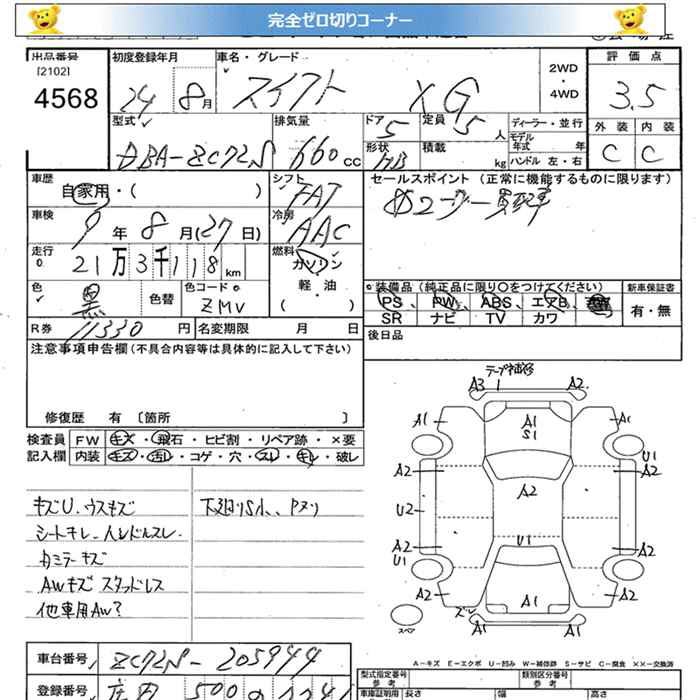 完全ゼロ切りコーナー
出品番号 初度登録年月 車名・グレード 2WD 4WD 評価点
[2102]
4568 24 8月 スイフト XG 3.5
型式 排気量 ドア 定員 ディーラー・並行 外装 内装
DBA-ZC72S 660cc 5 5人 モデル年式 年 C C
形状 HB 積載 kg ハンドル 左・右
車歴 シフト セールスポイント (正常に機能するものに限ります)
自家用・( ) FAT ユーザー買取車
車検 冷房
9年8月(27日) AAC
走行 燃料
21万3千118km ガソリン
軽・油
色 色コード 装備品 (純正品に限り○をつけてください) 新車保証書
黒 色替 ZMV ( ) PS PW ABS エアB 有・無
SR ナビ TV カワ
R券 11330円 名変期限 月 日 後日品
注意事項申告欄 (不具合内容等は具体的に記入して下さい)
修復歴 有 〔箇所 〕
検査員 FW キズ・飛石・ヒビ割・リペア跡・×要
記入欄 内装 キズ・汚レ・コゲ・穴・スレ・キレ・破レ
キズU.ウスキズ 下廻りS小、Pヌリ
シートキレ.ハンドルスレ
カミラーキズ
AWキズ スタッドレス
他車用AW?
テープ補修
A3 A2
A1 A1 A1
S1
U1
A2 A2 A2
U2
A2 U1 A2
U1
A2 A1 A2
ズレ
スペア A1 A1
A-キズ E-エクボ U-凹み W-補修跡 S-サビ C-腐食 ××-交換済
車台番号 ZC72S-205944
型式指定番号 類別区分番号
登録番号 500
車庫証明用参考 長さ 幅 高さ